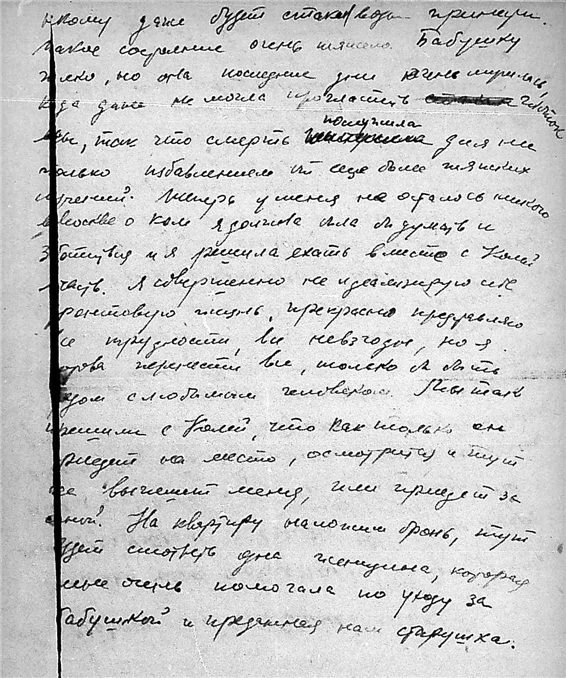 никому даже будет стакан воды принести.
Такое состояние очень тяжело. Бабушку
жалко, но она последние дни очень мучилась,
когда даже не могла проглотить глоток
воды, так что смерть послужила для неё
только избавлением от еще более тяжких
мучений. Теперь у меня не осталось никого
в Москве о ком я должна была бы думать и
заботиться и я решила ехать вместе с Колей
часть. Я совершенно не идеализирую себе
фронтовую жизнь, прекрасно представляю
все трудности, все невзгоды, но я
готова перенести все, только бы быть
рядом с любимым человеком. Мы так
решили с Колей, что как только он
приедет на место, осмотрится и тут
же вызовет меня, или приедет за
мной. На квартиру наложим бронь, тут
будет смотреть одна женщина, которая
мне очень помогала по уходу за
бабушкой и преданная нам старушка.